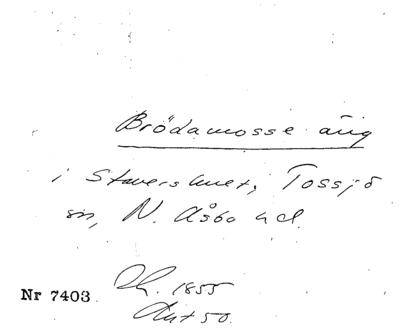 Brödamosse äng
i Stavershult, Tossjö
sn, N. Åsbo hd.
1855
Nr 7403
Akt 50.